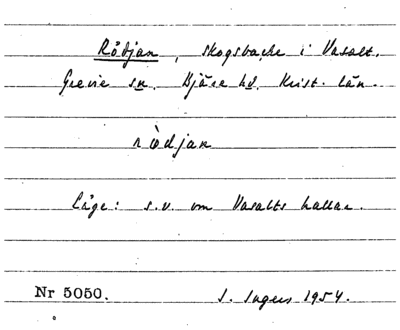 Rödjan, skogsbacke i Vasalt.
Grevie sn. Bjäre hd. Krist. län.
ròdjan
Läge: s.v. om Vasalts hallar.
Nr 5050. S. Ingers 1954.